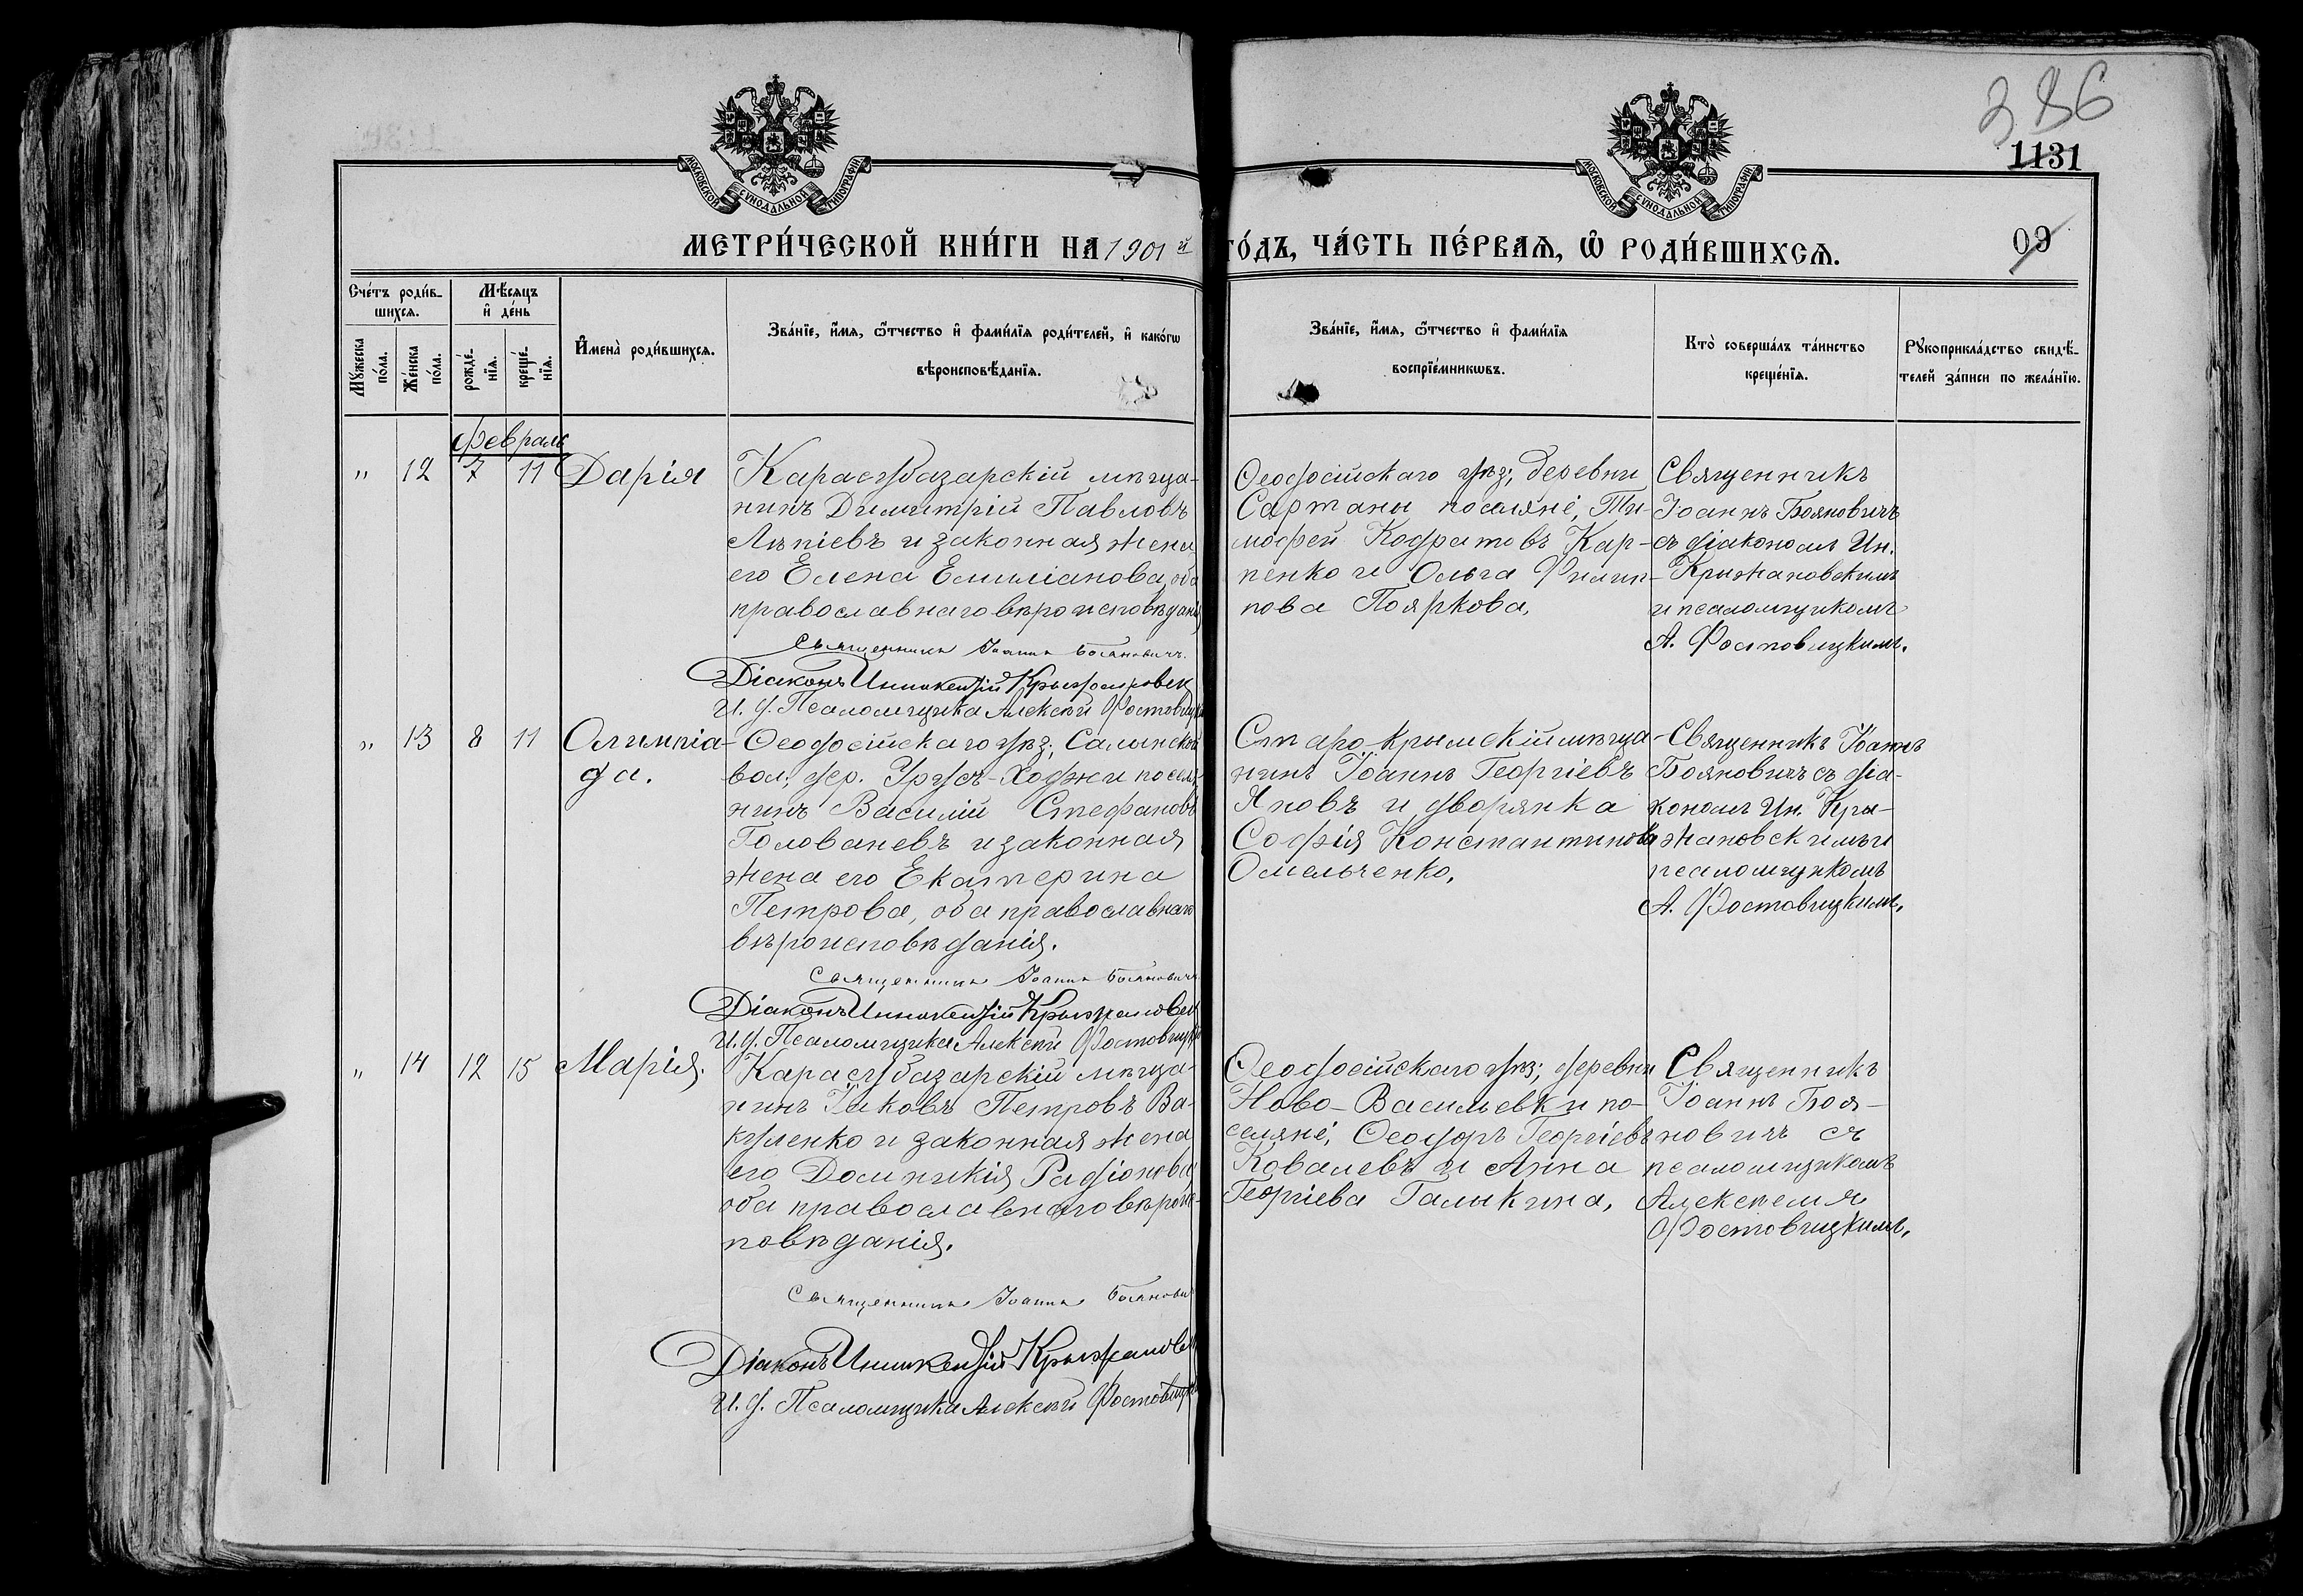 386
1131
09
МОСКОВСКОЙ СѴНОДАЛЬНОЙ ТИПОГРАФІИ
МОСКОВСКОЙ СѴНОДАЛЬНОЙ ТИПОГРАФІИ
МЕТРИ́ЧЕСКОЙ КНИ́ГИ НА 1901й ГО́ДЪ, ЧА́СТЬ ПЕ́РВАѦ, Ѡ҆ РОДИ́ВШИХСѦ.
Сче́тъ роди́в-
шихсѧ.
Мꙋ́жеска
по́ла.
Же́нска
по́ла.
Мѣ́сѧцъ
и҆ де́нь
рожде́-
нїѧ.
креще́-
нїѧ.
И҆мена̀ роди́вшихсѧ.
Зва́нїе, и҆́мѧ, ѻ҆́тчество и҆ фами́лїѧ роди́телей, и҆ како́гѡ
вѣроисповѣ́данїѧ.
Зва́нїе, и҆́мѧ, ѻ҆́тчество и҆ фами́лїѧ
воспрїе́мникѡвъ.
Кто̀ соверша́лъ та́инство
креще́нїѧ.
Рꙋкоприкла́дство свидѣ́-
телей за́писи по жела́нїю.
Февраль
" 12 7 11 Дарія
Карасубазарскій мѣща-
нинъ Димитрій Павловъ
Алпіевъ и законная жена
его Елена Емиліанова, оба
православнаго вѣроисповѣданія
Священникъ Іоаннъ Бояновичъ.
Діаконъ Иннокентій Крыжановск
И. д. Псаломщика Алексѣй Фостовицкі
Ѳеодосійскаго уѣз; деревни
Сартаны поселяне, Ти-
мофей Кодратовъ Кар-
пенко и Ольга Филип-
пова Пояркова,
Священникъ
Іоаннъ Бояновичъ
съ діакономъ Ин.
Крыжановскимъ
и псаломщикомъ
А. Фостовицкимъ.
" 13 8 11 Олимпіа-
да.
Ѳеодосійскаго уѣз; Салынской
вол; дер. Урусъ-Ходжи поселя
нинъ Василій Стефановъ
Голованевъ и законная
жена его Екатерина
Петрова, оба православнаго
вѣроисповѣданія.
Священникъ Іоаннъ Бояновичъ
Діаконъ Иннокентій Крыжановск
И. д. Псаломщика Алексѣй Фостовицкі
Старо-Крымскій мѣща-
нинъ Іоаннъ Георгіевъ
Яновъ и дворянка
Софія Константинова
Омельченко,
Священникъ Іоаннъ
Бояновичъ съ діа-
кономъ Ин. Кры-
жановскимъ и
псаломщикомъ
А. Фостовицкимъ.
" 14 12 15 Марія.
Карасубазарскій мѣща-
нинъ Іаковъ Петровъ Ва-
куленко и законная жена
его Домникія Радіонова
оба православнаго вѣроис-
повѣданія.
Священникъ Іоаннъ Боянович
Діаконъ Иннокентій Крыжановск
И. д. Псаломщика Алексѣй Фостовицк
Ѳеодосійскаго уѣз; деревни
Ново-Васильевки по-
селяне, Ѳеодоръ Георгіевъ
Ковалевъ и Анна
Георгіева Галыкина,
Священникъ
Іоаннъ Боя-
новичъ съ
псаломщикомъ
Алексѣемъ
Фостовицкимъ.